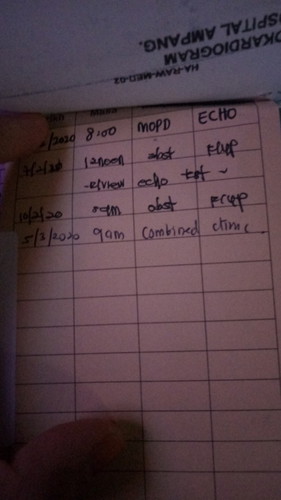 OKARDIOGRAM
SPITAL AMPANG.
HA-RAW-MED-02
2/2020 8:00 MOPD ECHO
12noon obst F/up
review echo
10/2/20 obst F/up
5/3/2020 9am Combined clinic